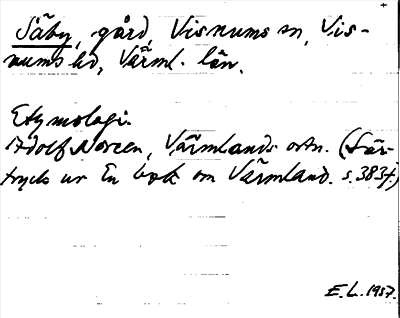 Säby, gård, Visnums sn, Vis-
nums hd, Värml. län.
Etymologi.
Adolf Noreen, Värmlands ortn. (Sär-
tryck ur En bok om Värmland. s. 383f.)
E.L. 1937.